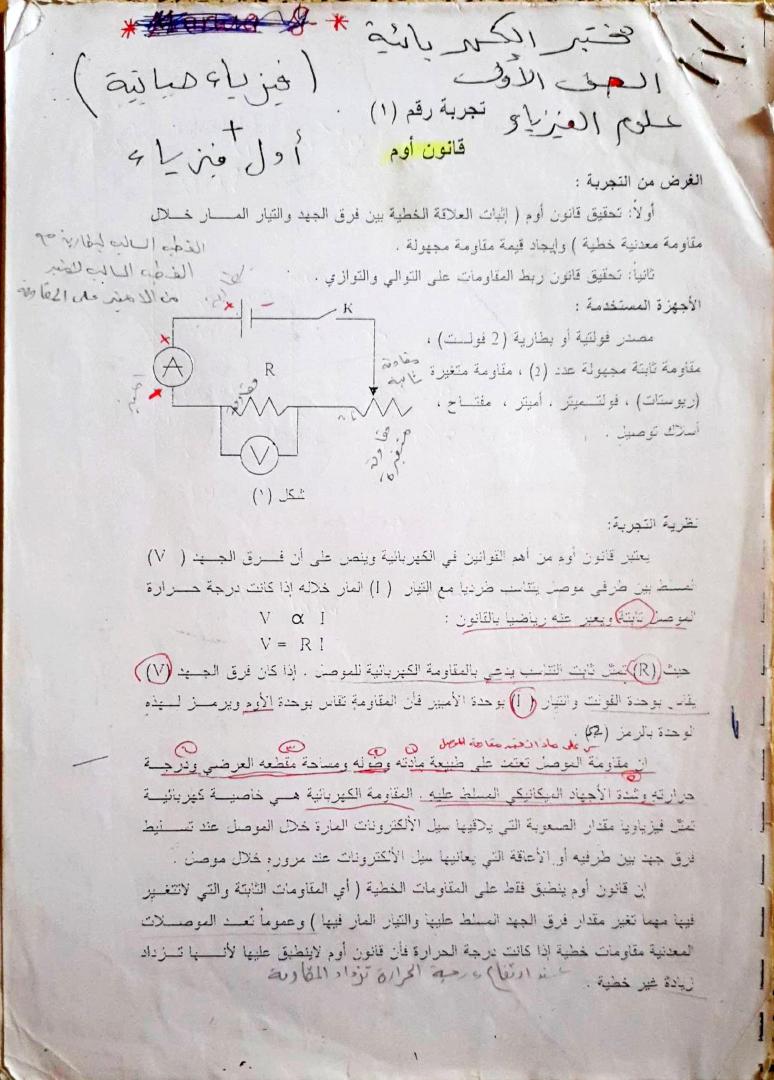 مختبر الكهربائية
الصف الأولى
(فيزياء حياتية)
علوم الفيزياء
+
أول فيزياء
تجربة رقم (١)
قانون أوم
الغرض من التجربة :
أولاً: تحقيق قانون أوم ( إثبات العلاقة الخطية بين فرق الجهد والتيار المـــار خـــلال
مقاومة معدنية خطية ) وإيجاد قيمة مقاومة مجهولة .
ثانياً: تحقيق قانون ربط المقاومات على التوالي والتوازي .
القطب السالب للبطارية مع
القطب السالب
من الاميتر على المقاومة
الأجهزة المستخدمة :
مصدر فولتية أو بطارية (2 فولت) ،
مقاومة ثابتة مجهولة عدد (2) ، مقاومة متغيرة
(ريوستات) ، فولتـــميتر ، أميتر ، مفتـــاح ،
أسلاك توصيل .
K
A
R
V
مقاومة
ثابتة
مقاومة
متغيرة
شكل (١)
نظرية التجربة:
يعتبر قانون أوم من أهم القوانين في الكهربائية وينص على أن فـــرق الجـــهد ( V)
المسلط بين طرفي موصل يتناسب طرديا مع التيار ( I) المار خلاله إذا كانت درجة حـــرارة
الموصل ثابتة ويعبر عنه رياضيا بالقانون :
V ∝ I
V = R I
حيث (R) تمثل ثابت التناسب يدعى بالمقاومة الكهربائية للموصل . إذا كان فرق الجـــهد (V)
يقاس بوحدة الفولت والتيار ( I) بوحدة الأمبير فأن المقاومة تقاس بوحدة الأوم ويرمـــز لـــهذه
الوحدة بالرمز (Ω) .
س على ماذا تعتمد مقاومة الموصل
إن مقاومة الموصل تعتمد على طبيعة مادته وطوله ومساحة مقطعه العرضي ودرجـــة
حرارته وشدة الأجهاد الميكانيكي المسلط عليه . المقاومة الكهربائية هـــي خاصيـــة كهربائيـــة
تمثل فيزياويا مقدار الصعوبة التي يلاقيها سيل الألكترونات المارة خلال الموصل عند تســـليط
فرق جهد بين طرفيه أو الأعاقة التي يعانيها سيل الألكترونات عند مروره خلال موصل .
إن قانون أوم ينطبق فقط على المقاومات الخطية ( أي المقاومات الثابتة والتي لاتتغـــير
قيمها مهما تغير مقدار فرق الجهد المسلط عليها والتيار المار فيها ) وعموماً تعـــد الموصـــلات
المعدنية مقاومات خطية إذا كانت درجة الحرارة فأن قانون أوم لاينطبق عليها لأنـــها تـــزداد
زيادة غير خطية .
عند ارتفاع درجة الحرارة تزداد المقاومة
١